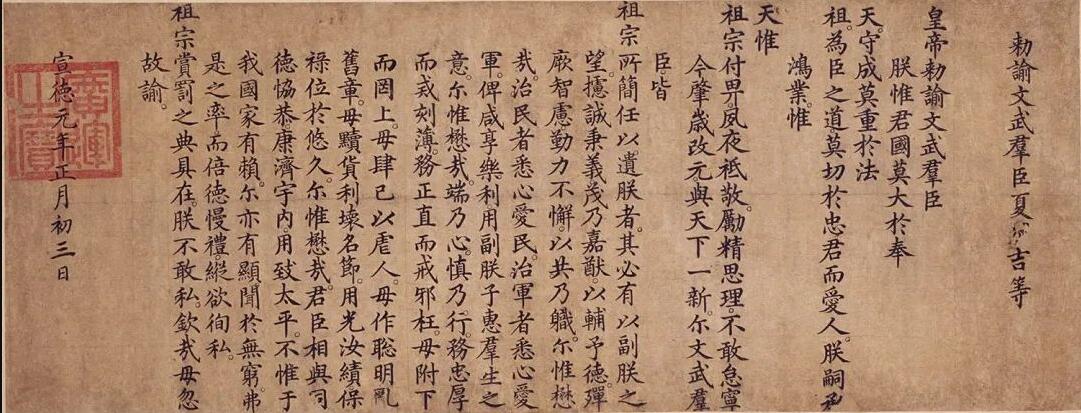 勅諭文武羣臣夏原吉等
皇帝勅諭文武羣臣
朕惟君國莫大於奉
天。守成莫重於法
祖。為臣之道。莫切於忠君而愛人。朕嗣承
鴻業。惟
天惟
祖宗付畀。夙夜祗敬。勵精思理。不敢怠寧
今肇歲改元。與天下一新。尓文武羣
臣。皆
祖宗所簡任以遺朕者。其必有以副朕之
望。攄誠秉義。茂乃嘉猷。以輔予德。殫
厥智慮。勤力不懈。以共乃職。尓惟懋
㢤。治民者悉心愛民。治軍者悉心愛
軍。俾咸享樂利。用副朕子惠羣生之
意。尓惟懋㢤。端乃心。慎乃行。務忠厚
而戒刻薄。務正直而戒邪枉。毋附下
而罔上。毋肆己以虐人。毋作聡明亂
舊章。毋黷貨利壊名節。用光汝績。保
祿位於悠久。尓惟懋㢤。君臣相與。同
德恊恭。康濟宇內。用致太平。不惟于
我國家有賴。尓亦有顯聞於無窮。弗
是之率。而倍德慢禮。縱欲徇私。
祖宗賞罰之典具在。朕不敢私。欽㢤毋忽
故諭。
宣德元年正月初三日